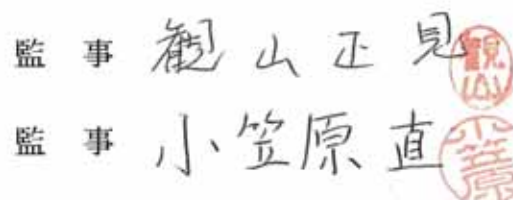 監事 観山正見 観山
監事 小笠原直 小笠原